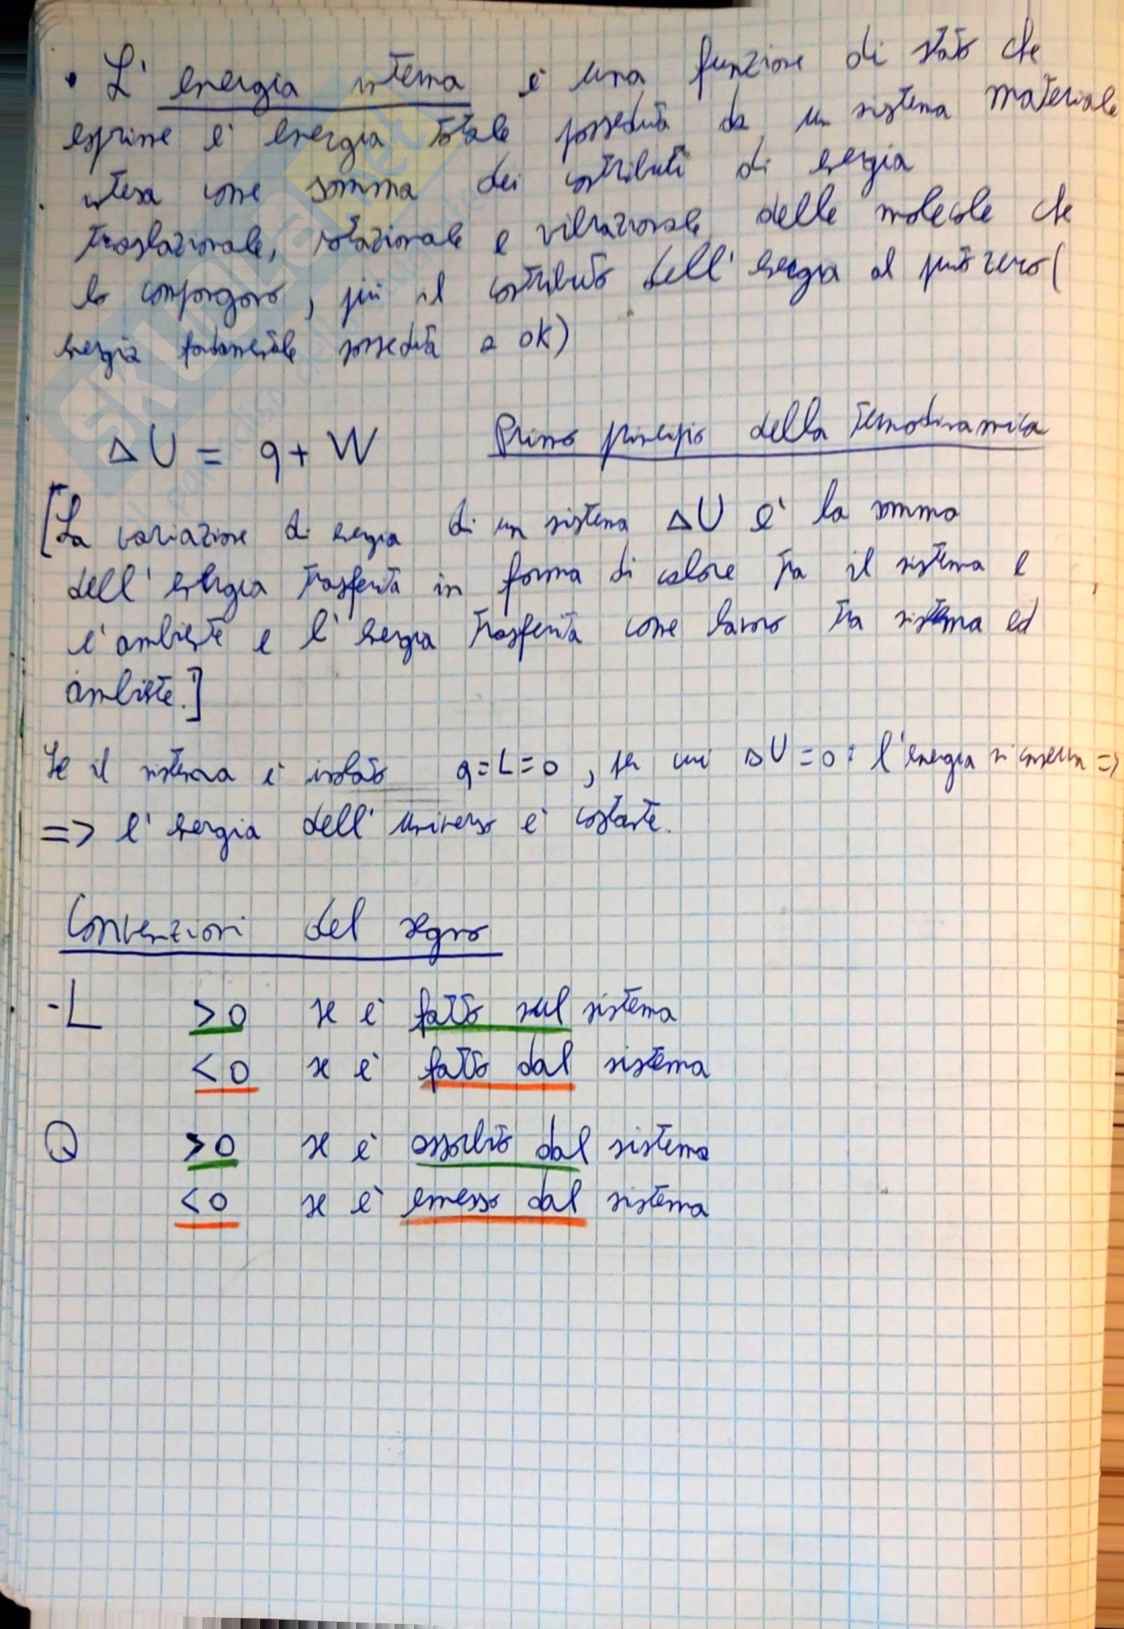 • L' energia interna è una funzione di stato che
esprime l' energia totale posseduta da un sistema materiale
intesa come somma dei contributi di energia
traslazionale, rotazionale e vibrazionale delle molecole che
lo compongono, più il contributo dell' energia al punto zero (
energia fondamentale posseduta a 0K)
ΔU = q + W Primo principio della termodinamica
[La variazione di energia di un sistema ΔU è la somma
dell' energia trasferita in forma di calore tra il sistema e
l'ambiente e l' energia trasferita come lavoro tra sistema ed
ambiente.]
Se il sistema è isolato q=L=0, per cui ΔU=0: l'energia si conserva =>
=> l' energia dell' universo è costante.
Convenzioni del segno
-L >0 se è fatto sul sistema
<0 se è fatto dal sistema
Q >0 se è assorbito dal sistema
<0 se è emesso dal sistema